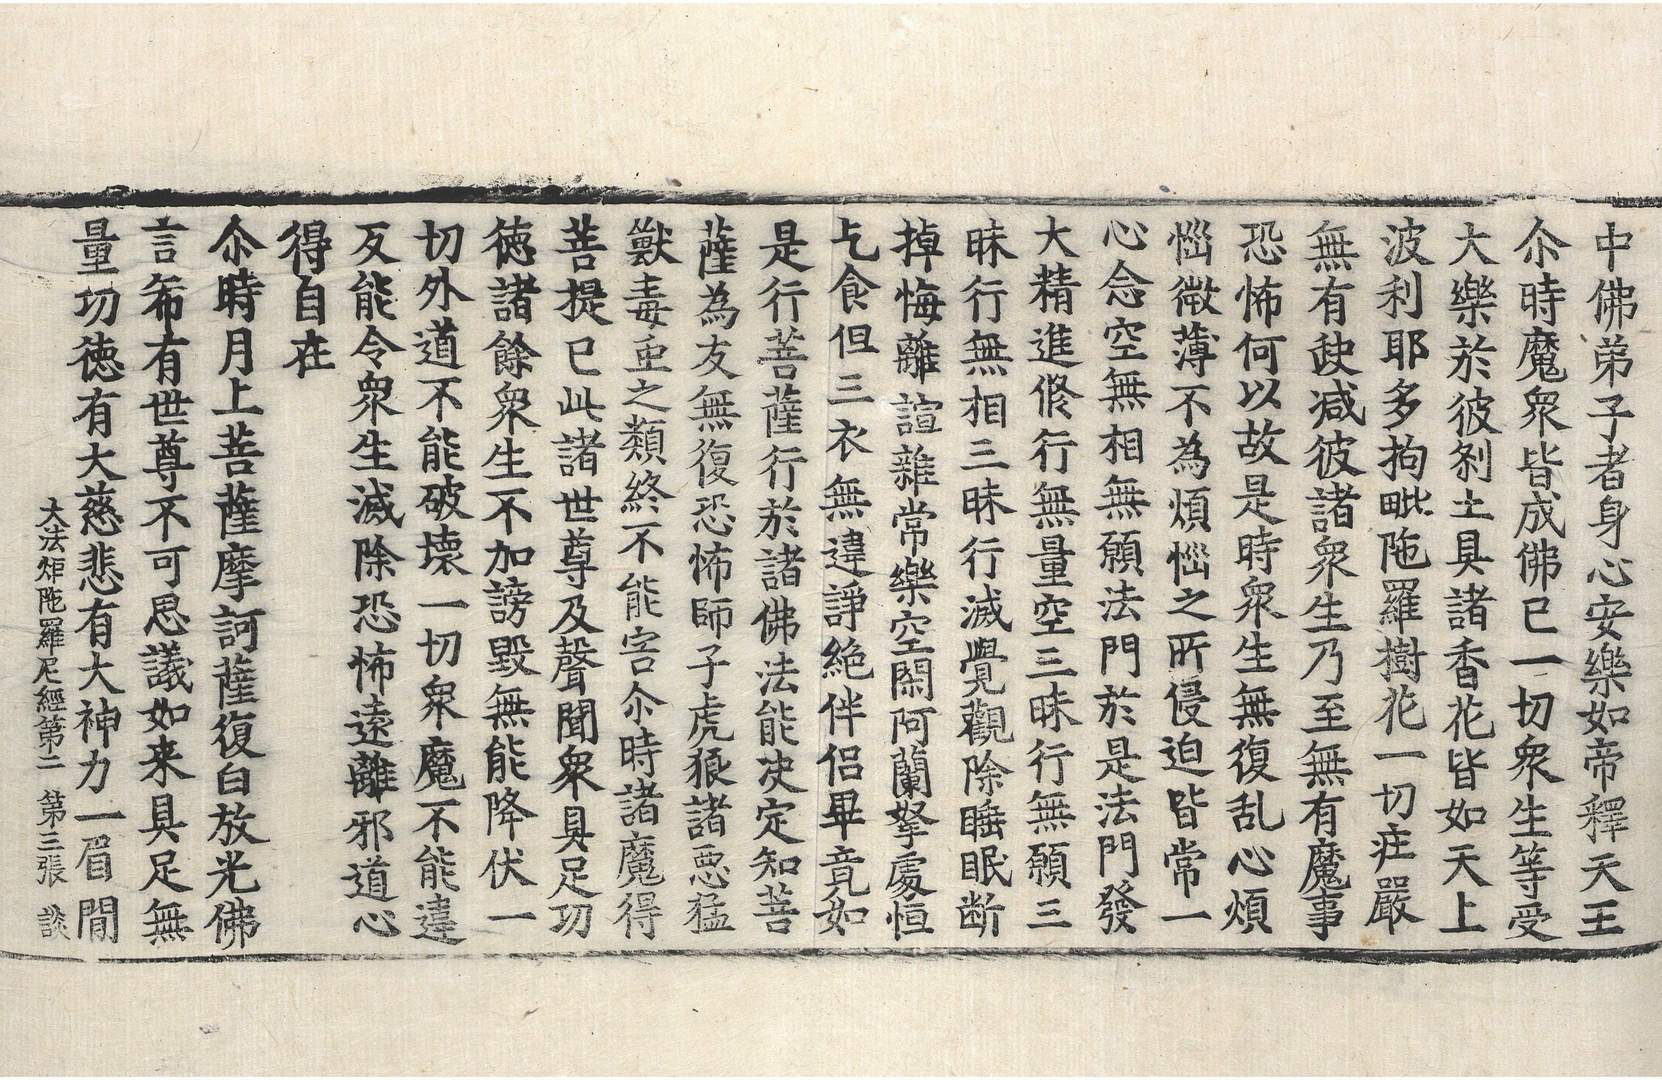 中佛弟子者身心安樂如帝釋天王
尒時魔衆皆成佛已一切衆生等受
大樂於彼刹土具諸香花皆如天上
波利耶多拘毗陁羅樹花一切庄嚴
無有𡙇减彼諸衆生乃至無有魔事
恐怖何以故是時衆生無復乱心煩
惱微薄不為煩惱之所侵迫皆常一
心念空無相無願法門於是法門發
大精進修行無量空三昧行無願三
昧行無相三昧行滅覺觀除睡眠断
掉悔離諠雜常樂空閑阿蘭拏處恒
乞食但三衣無違諍絶伴侣畢竟如
是行菩薩行於諸佛法能决定知菩
薩為友無復恐怖師子虎狼諸惡猛
獸毒䖝之類終不能害尒時諸魔得
菩提已此諸世尊及聲聞衆具足功
徳諸餘衆生不加謗毀無能降伏一
切外道不能破壊一切衆魔不能違
反能令衆生滅除恐怖遠離邪道心
得自在
尒時月上菩薩摩訶薩復白放光佛
言希有世尊不可思議如来具足無
量功徳有大慈悲有大神力一眉間
大法炬陁羅尼經第二 第三張 談